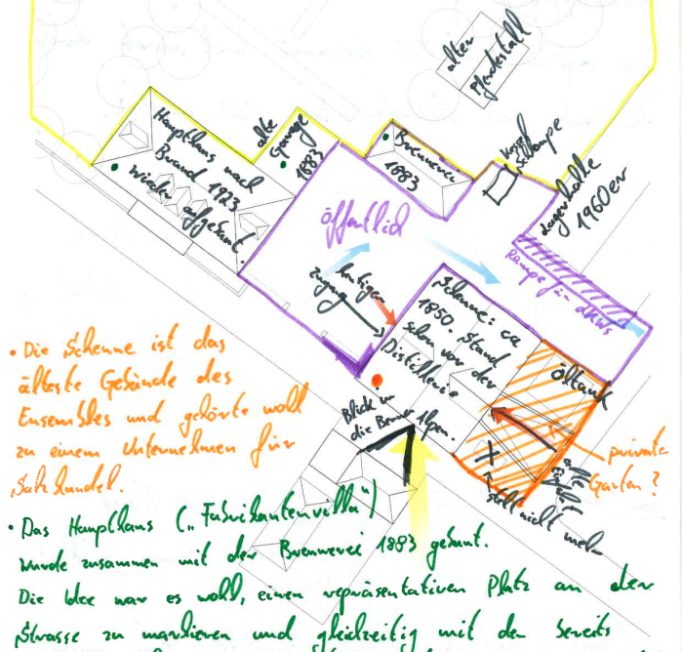 alter
Pferdestall
alte
Garage
1883
Haupthaus nach
Brand 1923
wieder aufgebaut.
Brennerei
1883
Lagerhalle
1960er
öffentlich
Rampe für LKWs
heutiger
Zugang
Scheune: ca
1850. Stand
schon vor der
Distillerie
Öltank
Blick in
die Berner Alpen.
X
steht nicht mehr
private
Garten?
• Die Scheune ist das
älteste Gebäude des
Ensembles und gehörte wohl
zu einem Unternehmen für
Salzhandel.
• Das Haupthaus („Fabrikantenvilla")
wurde zusammen mit der Brennerei 1883 gebaut.
Die Idee war es wohl, einen repräsentativen Platz an der
Strasse zu markieren und gleichzeitig mit den bereits